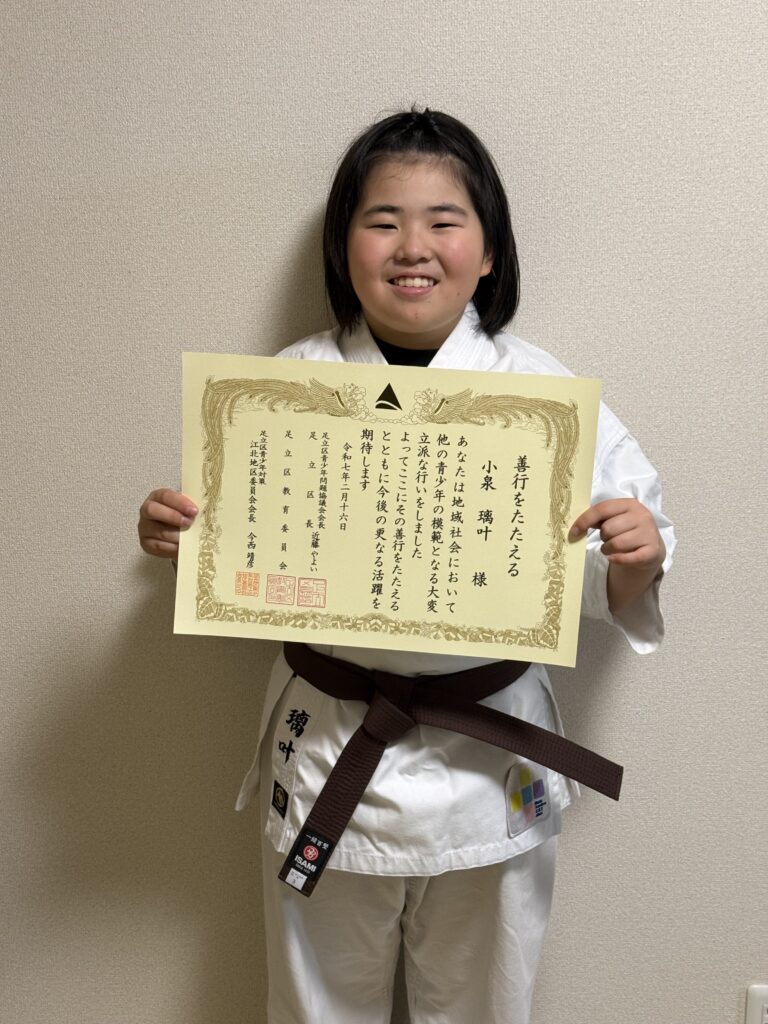 善行をたたえる
小泉 璃叶 様
あなたは地域社会において
他の青少年の模範となる大変
立派な行いをしました
よってここにその善行をたたえる
とともに今後の更なる活躍を
期待します
令和七年二月十六日
足立区青少年問題協議会会長
足立区長 近藤やよい
足立区教育委員会
足立区青少年対策
江北地区委員会会長 今西 靖彦
璃叶
ISAMI